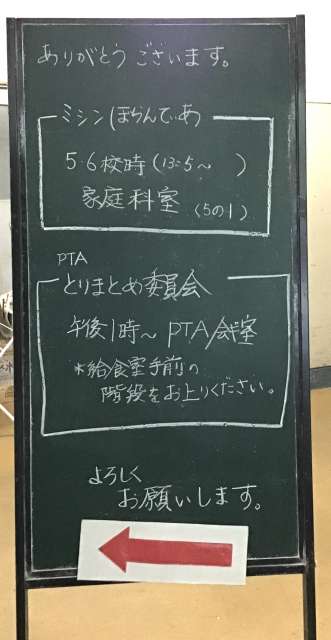 ありがとうございます。
ミシンぼらんてぃあ
5・6校時(13:5~ )
家庭科室 (5の1)
PTA
とりまとめ委員会
午後1時~ PTA会議室
*給食室手前の
階段をお上りください。
よろしく
お願いします。